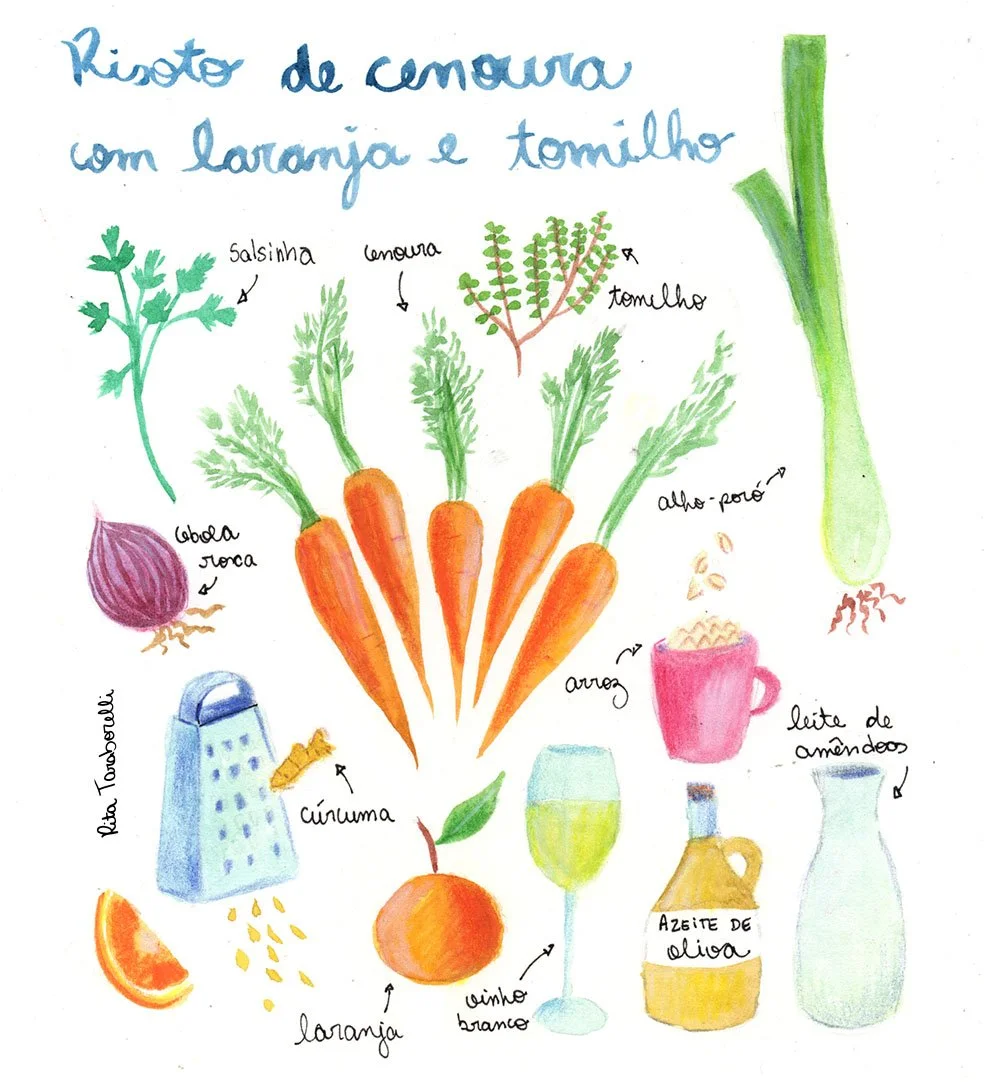 Risoto de cenoura
com laranja e tomilho
salsinha
cenoura
tomilho
alho-poró
cebola
roxa
arroz
leite de
amêndoas
Rita Taraborelli
cúrcuma
AZEITE DE
oliva
laranja
vinho
branco